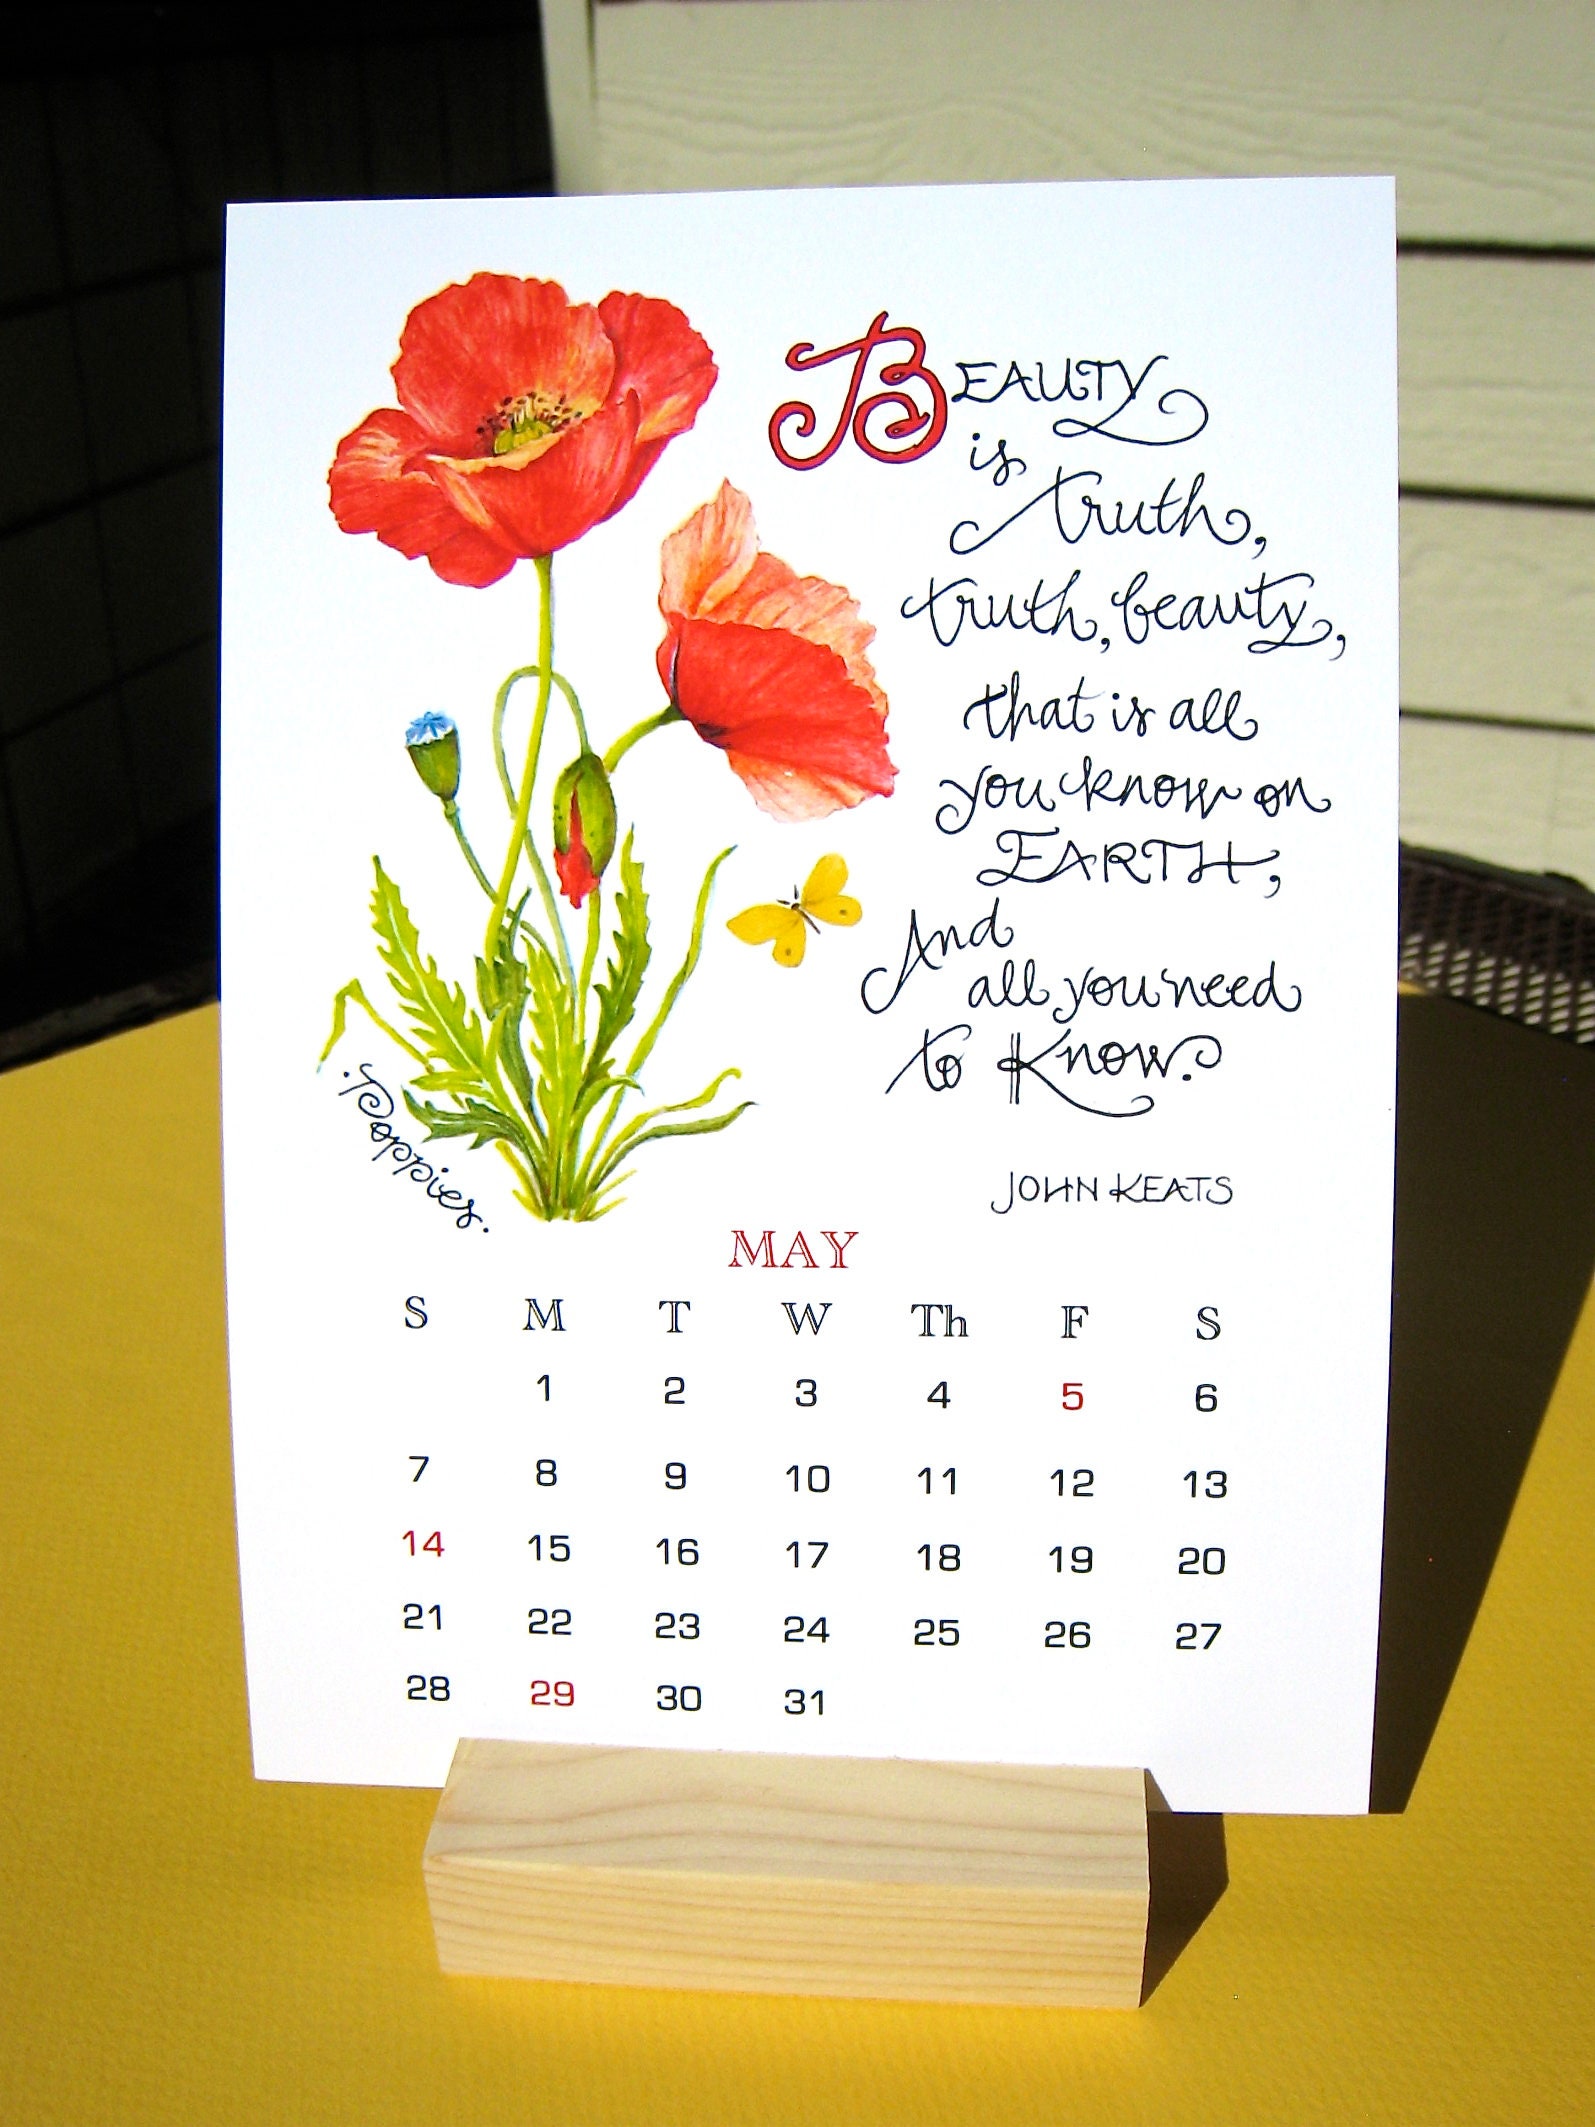 BEAUTY
is
truth,
truth, beauty,
that is all
you know on
EARTH,
And
all you need
to Know.
JOHN KEATS
.Poppies.
MAY
S M T W Th F S
1 2 3 4 5 6
7 8 9 10 11 12 13
14 15 16 17 18 19 20
21 22 23 24 25 26 27
28 29 30 31